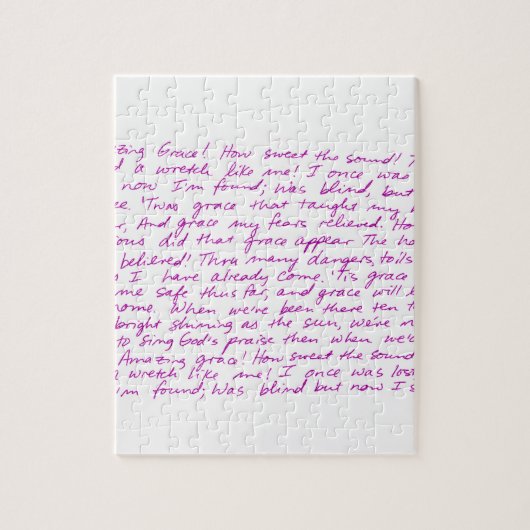 zing Grace! How sweet the sound! T
d a wretch like me! I once was
now I'm found; Was blind, but
ee. 'Twas grace that taught my h
r, And grace my fears relieved. Ho
ous did that grace appear The ho
believed! Thru many dangers, toils
s I have already come. 'Tis grace
me safe thus far, and grace will l
home. When we've been there ten t
bright shining as the sun, we've n
to sing God's praise then when we'd
Amazing grace! How sweet the sound
a wretch like me! I once was los
I'm found; Was blind but now I s